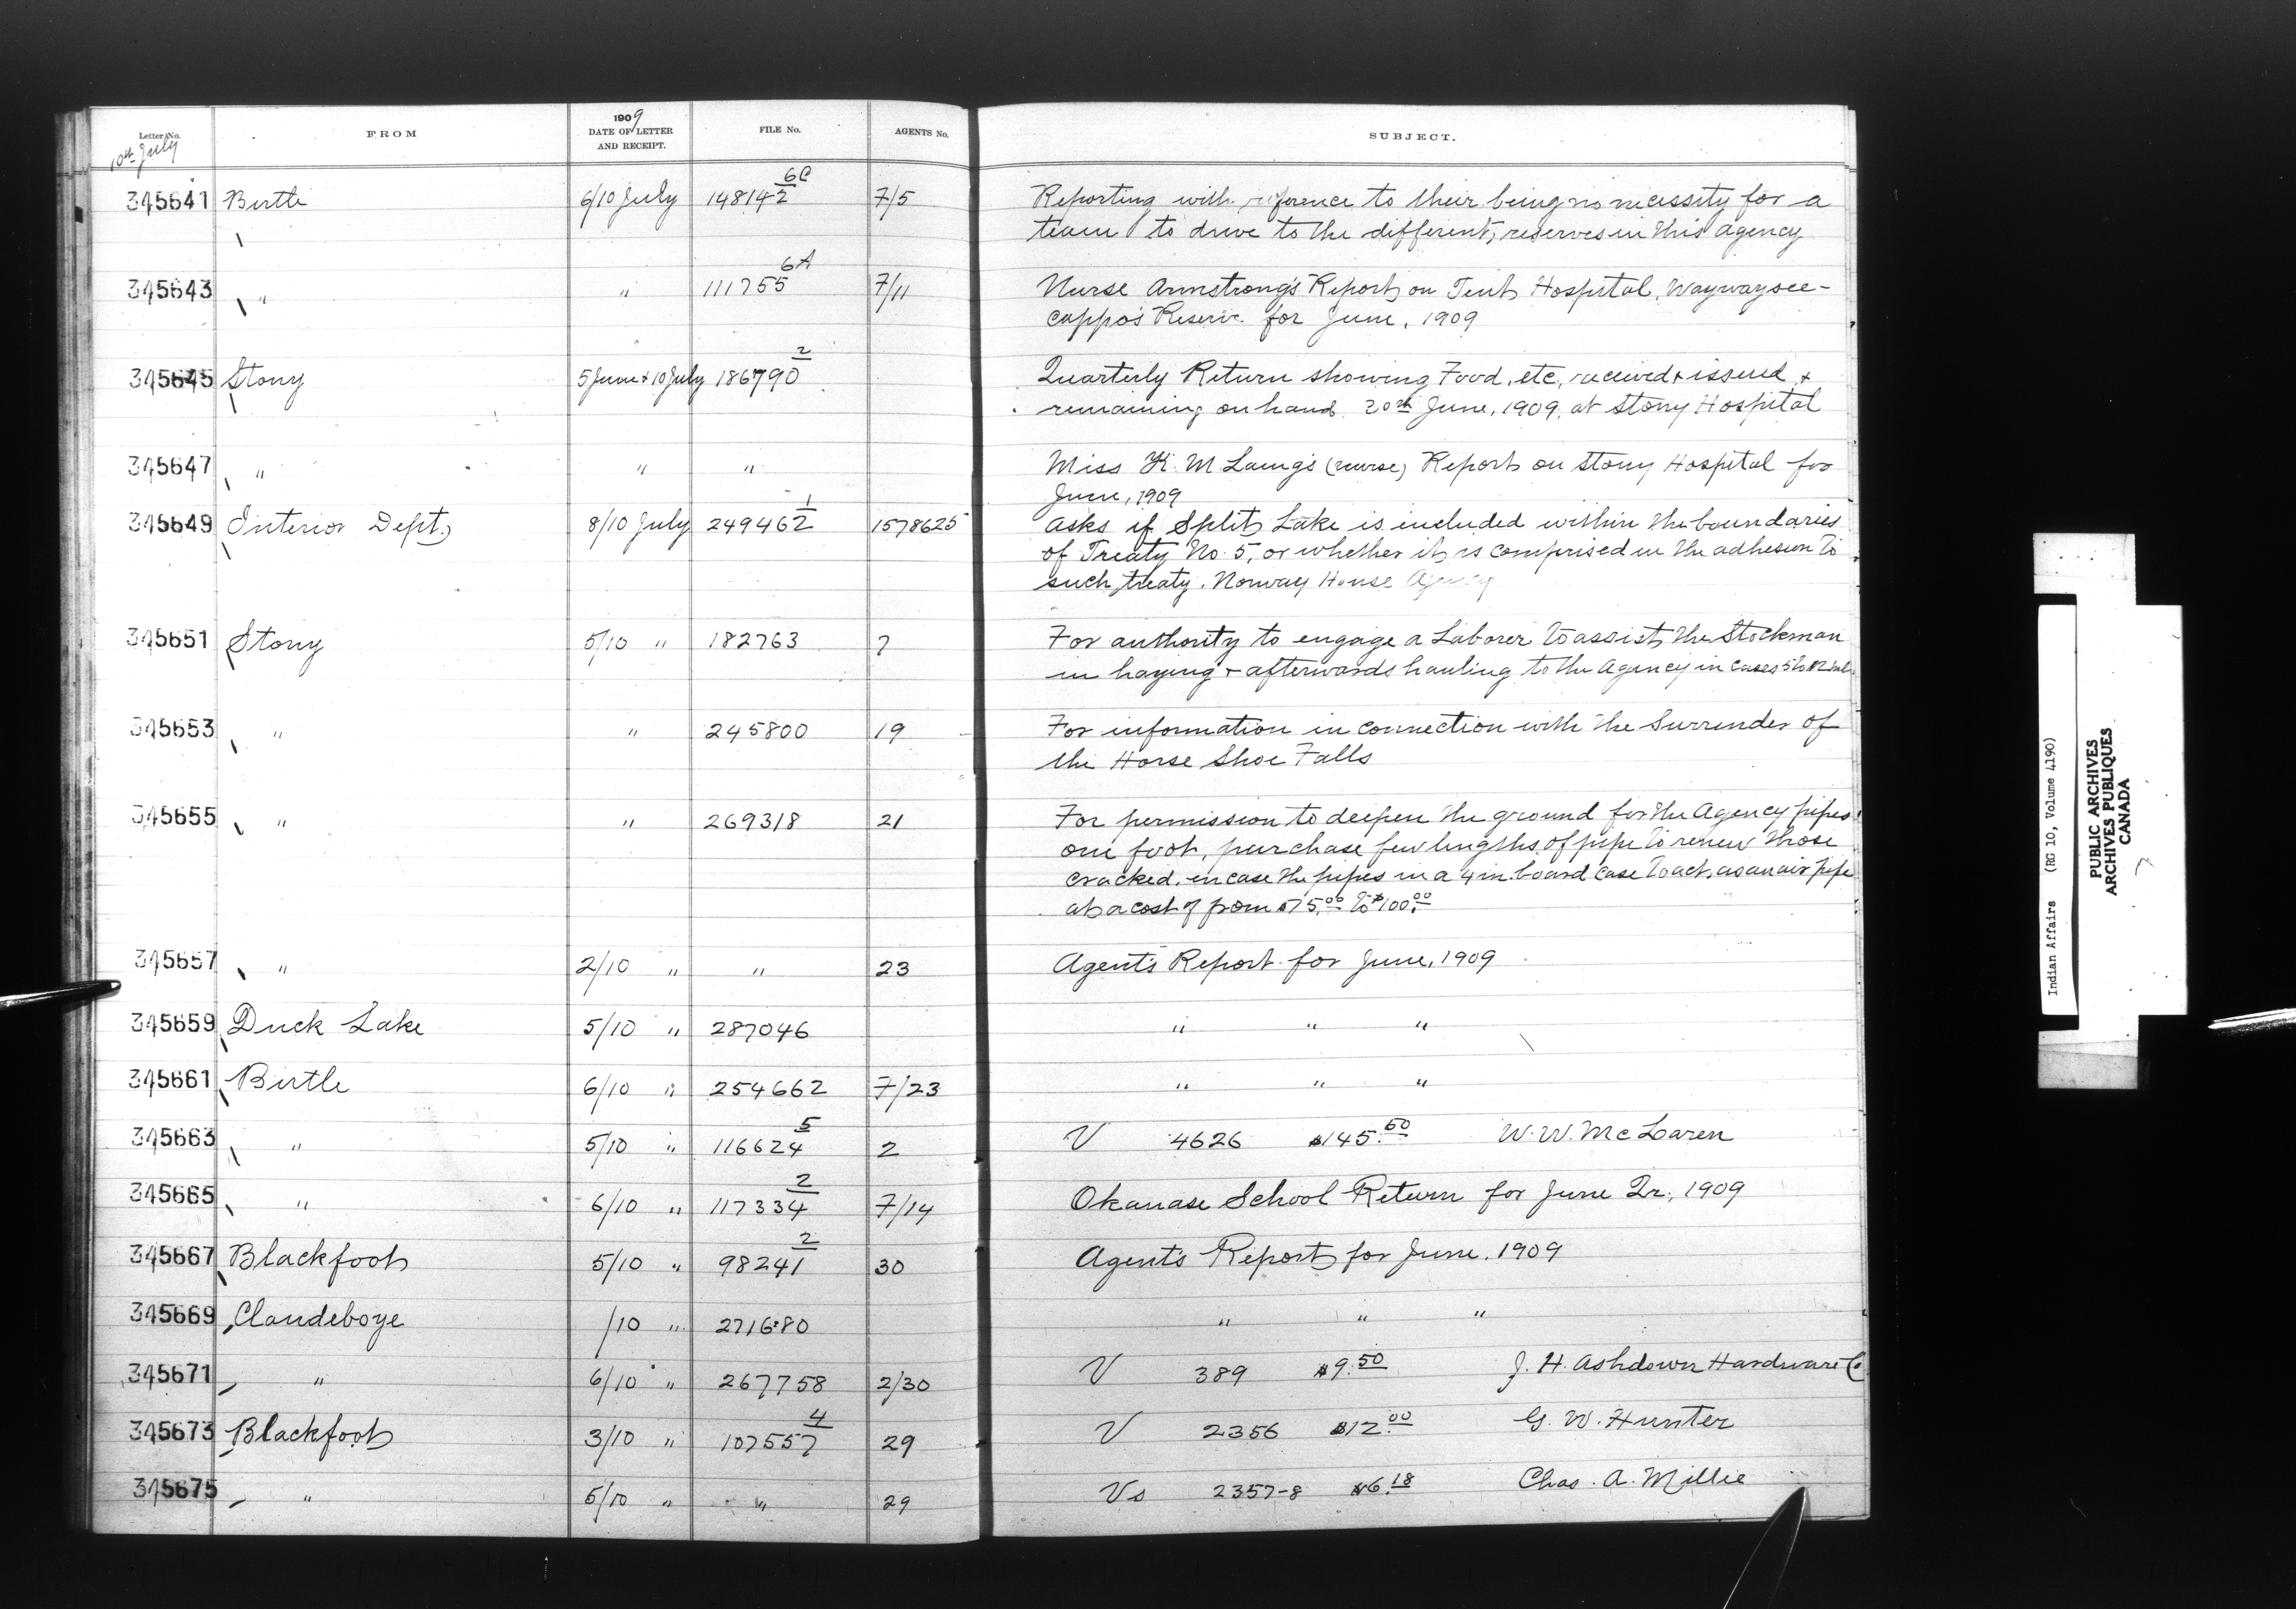 Letter No. FROM 1909 DATE OF LETTER AND RECEIPT. FILE No. AGENTS No. SUBJECT.
10th July
345641 Birtle 6/10 July 148142 6C 7/5 Reporting with reference to their being no necessity for a
team to drive to the different reserves in this agency
345643 " " 111755 6A 7/11 Nurse Armstrong's Report on Tent Hospital, Waywaysee-
cappo's Reserve for June, 1909
345645 Stony 5 June & 10 July 186790 2 Quarterly Return showing Food, etc, received & issued &
remaining on hand 20th June, 1909, at Stony Hospital
345647 " " " Miss K. M Laing's (nurse) Report on Stony Hospital for
June, 1909
345649 Interior Dept. 8/10 July 249462 1 1578625 Asks if Split Lake is included within the boundaries
of Treaty No. 5, or whether it is comprised in the adhesion to
such treaty. Norway House Agency
345651 Stony 5/10 " 182763 7 For authority to engage a Laborer to assist the Stockman
in haying & afterwards hauling to the Agency in cases
345653 " " 245800 19 For information in connection with the Surrender of
the Horse Shoe Falls
345655 " " 269318 21 For permission to deepen the ground for the Agency pipes
one foot, purchase few lengths of pipe to renew those
cracked, encase the pipes in a 4 in. board case to act as an air pipe
at a cost of from $75.00 to $100.00
345657 " 2/10 " " 23 Agent's Report for June, 1909
345659 Duck Lake 5/10 " 287046 " " "
345661 Birtle 6/10 " 254662 7/23 " " "
345663 " 5/10 " 116624 5 2 V 4626 $145.50 W. W. McLaren
345665 " 6/10 " 117334 2 7/14 Okanase School Return for June Qr, 1909
345667 Blackfoot 5/10 " 98241 2 30 Agent's Report for June, 1909
345669 Clandeboye /10 " 271680 " " "
345671 " 6/10 " 267758 2/30 V 389 $9.50 J. H. Ashdown Hardware Co
345673 Blackfoot 3/10 " 107557 4 29 V 2356 $12.00 G. W. Hunter
345675 " 5/10 " " 29 Vs 2357-8 $6.18 Chas. A. Millie
Indian Affairs (RG 10, Volume 4190)
PUBLIC ARCHIVES
ARCHIVES PUBLIQUES
CANADA